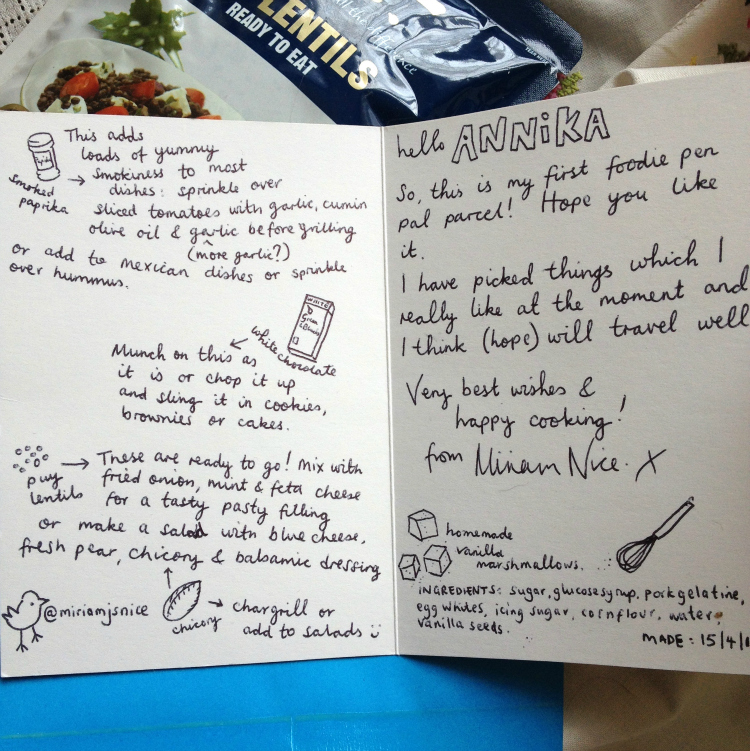 LENTILS
READY TO EAT
This adds
loads of yummy
smokiness to most
dishes: sprinkle over
sliced tomatoes with garlic, cumin
olive oil & garlic before grilling
(more garlic?)
or add to mexican dishes or sprinkle
over hummus.
Smoked
paprika
WHITE
Green
& Blacks
white chocolate
Munch on this as
it is or chop it up
and sling it in cookies,
brownies or cakes.
puy
lentils
These are ready to go! Mix with
fried onion, mint & feta cheese
for a tasty pasty filling
or make a salad with blue cheese,
fresh pear, chicory & balsamic dressing
@miriamjsnice
chicory
chargrill or
add to salads
hello ANNiKA
So, this is my first foodie pen
pal parcel! Hope you like
it.
I have picked things which I
really like at the moment and
I think (hope) will travel well
Very best wishes &
happy cooking!
from Miriam Nice. X
homemade
vanilla
marshmallows.
INGREDIENTS: sugar, glucose syrup, pork gelatine,
egg whites, icing sugar, cornflour, water,
vanilla seeds.
MADE: 15/4/1